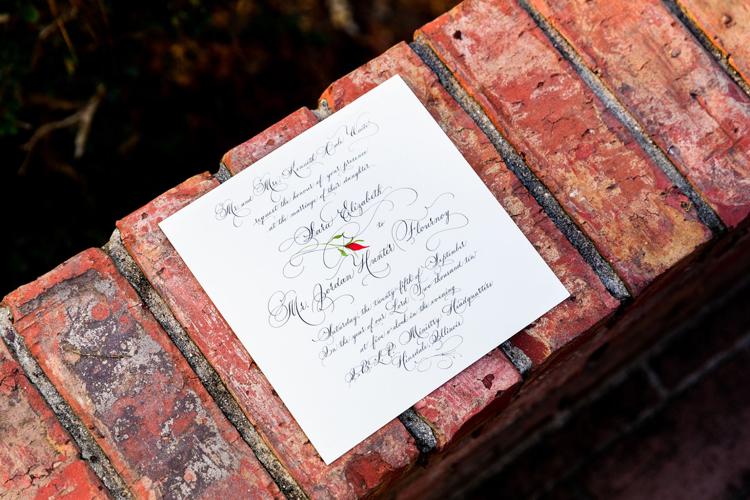 Mr. and Mrs. Kenneth Cole Waite
request the honour of your presence
at the marriage of their daughter
Sara Elizabeth
to
Mr. Jordan Hunter Flournoy
Saturday, the twenty fifth of September
In the year of our Lord Two thousand ten
at five o'clock in the evening
Ministry Headquarters
Hinsdale, Illinois